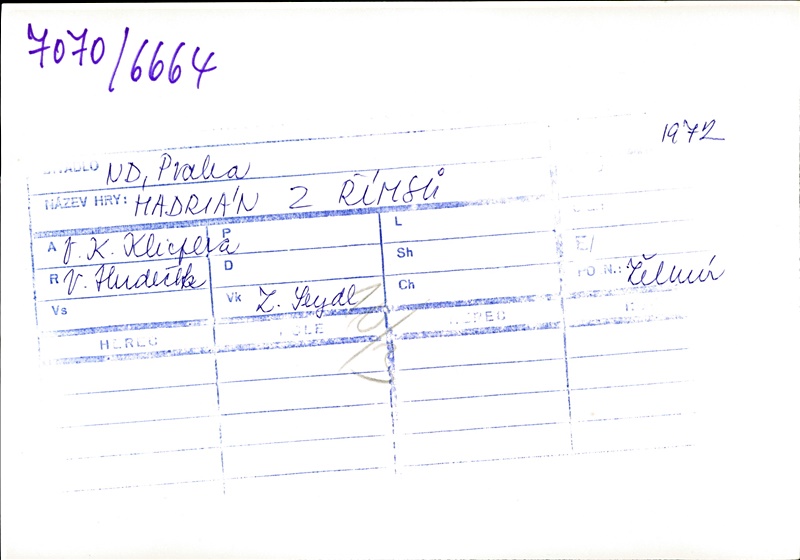 7070/6664
1972
DIVADLO ND, Praha
NÁZEV HRY: HADRIÁN Z ŘÍMSŮ
A V. K. Klicpera P L
R V. Hudeček D Sh
Vs Vk Z. Seydl Ch
HEREC ROLE HEREC